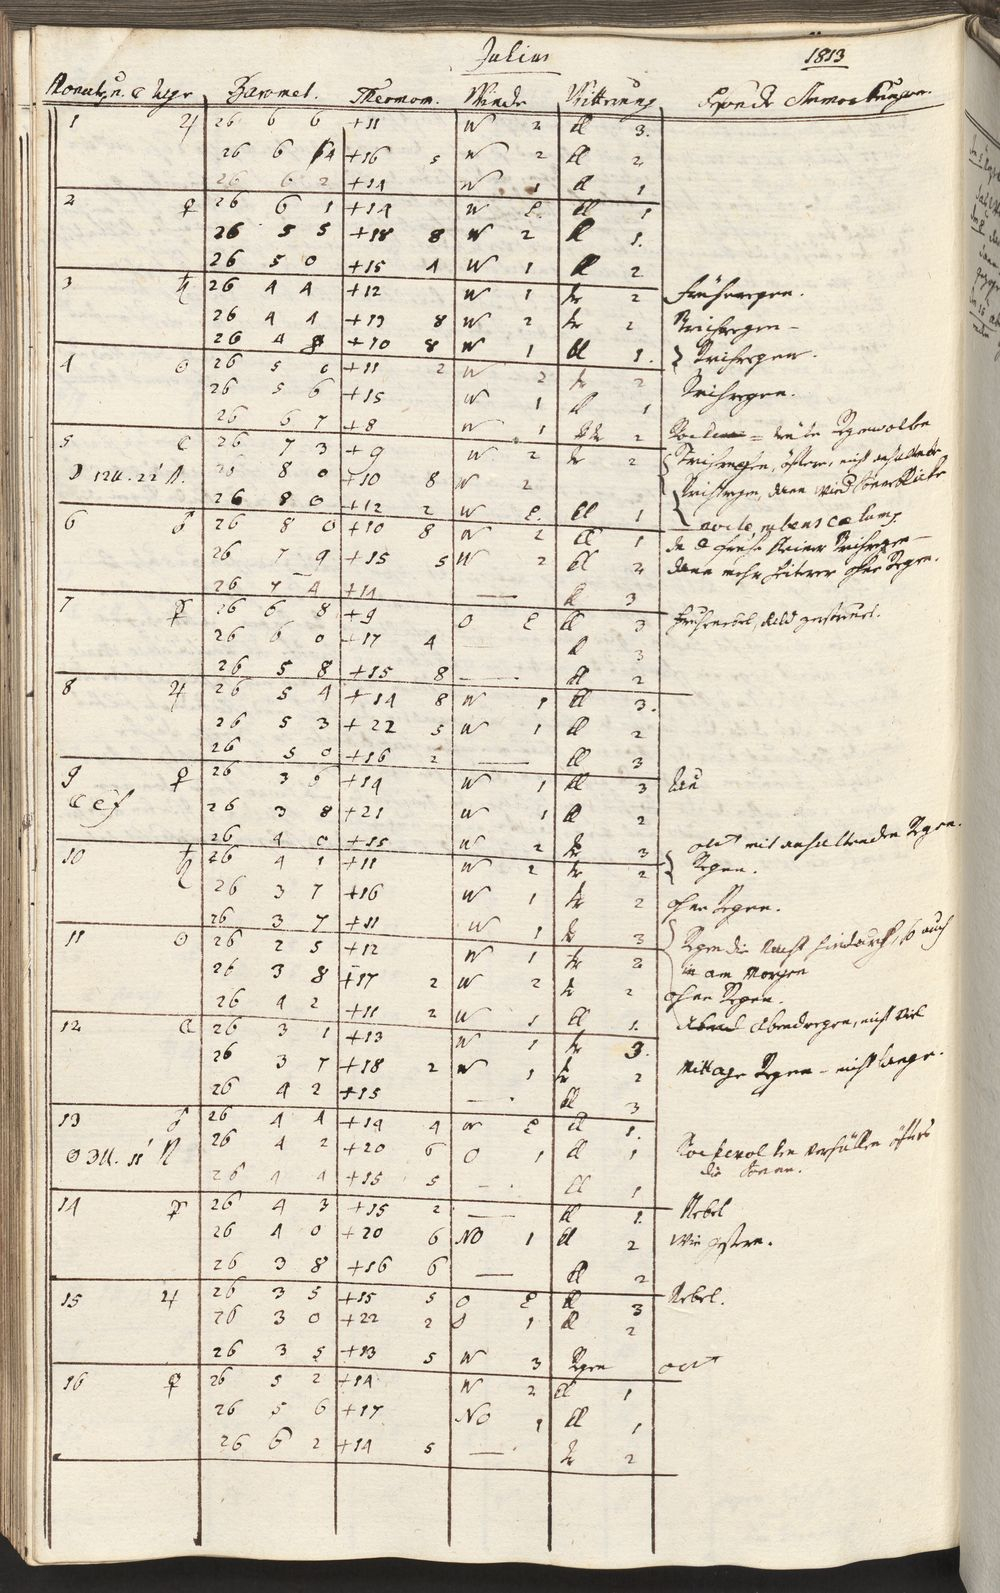 Julius 1813
Monats, u. ☾ tage Baromet. Thermom. Winde Witterung Besondre Anmerkungen.
1 ♃ 26 6 6 +11 W 2 kl 3.
26 6 4 +16 5 W 2 kl 2
26 6 2 +14 W 1 kl 1
2 ♀ 26 6 1 +14 W kl 1
26 5 5 +18 8 W 2 kl 1.
26 5 0 +15 4 W 1 kl 2
3 ♄ 26 4 4 +12 W 1 tr 2 Frühregen.
26 4 4 +13 8 W 2 tr 2 Strichregen –
26 4 8 +10 8 W 1 kl 1. Strichregen.
4 ☉ 26 5 0 +11 2 W 2 tr 2
26 5 6 +15 W 1 kl 1 Strichregen.
26 6 7 +8 W 1 tr 2
5 ☾ 26 7 3 +9 W 2 tr 2 Strichregen, öfters, nicht anhaltende
☽ 12U. 22' N. 26 8 0 +10 8 W 2 Strichregen, dann wied Sonnenblicke
26 8 0 +12 2 W kl 1
6 ♂ 26 8 0 +10 8 W 2 kl 1
26 7 9 +15 5 W 2 kl 2 dann mehr heiterer ohne Regen.
26 7 4 +14 — kl 3
7 ☿ 26 6 8 +9 O kl 3 Frühnebel, bald zerstreut.
26 6 0 +17 4 — kl 3
26 5 8 +15 8 — kl 2
8 ♃ 26 5 4 +14 8 W 1 kl 3.
26 5 3 +22 5 W 1 kl 2
26 5 0 +16 2 — kl 3
9 ♀ 26 3 +14 W 1 kl 3 Tau
26 3 8 +21 W 1 kl 2
26 4 0 +15 W 2 tr 3 mit anhaltenden Regen.
10 ♄ 26 4 1 +11 W 2 tr 2 Regen.
26 3 7 +16 W 1 tr 2 ohne Regen.
26 3 7 +11 W 1 tr 3 Regen die Nacht hindurch, so auch
11 ☉ 26 2 5 +12 W 1 tr 2 am Morgen
26 3 8 +17 2 W 2 tr 2 ohne Regen.
26 4 2 +11 2 W 1 kl 1. Abendregen, nicht viel
12 ☾ 26 3 1 +13 W 1 tr 3.
26 3 7 +18 2 W 1 tr 2 Mittags Regen – nicht lange.
26 4 2 +15 — kl 3
13 ♂ 26 4 4 +14 4 W kl 1.
☉ 3U. 11' N 26 4 2 +20 6 O 1 kl 1 verhüllen öfters
26 4 4 +15 5 — kl 1 die Sonne.
14 ☿ 26 4 3 +15 2 — kl 1. Nebel
26 4 0 +20 6 NO 1 kl 2 Wie gestern.
26 3 8 +16 6 — kl 2
15 ♃ 26 3 5 +15 5 O kl 3 Nebel.
26 3 0 +22 2 1 kl 2
26 3 5 +13 5 W 3 Regen
16 ♀ 26 5 2 +14 W 2 kl 1
26 5 6 +17 NO 1 kl 1
26 6 2 +14 5 — tr 2